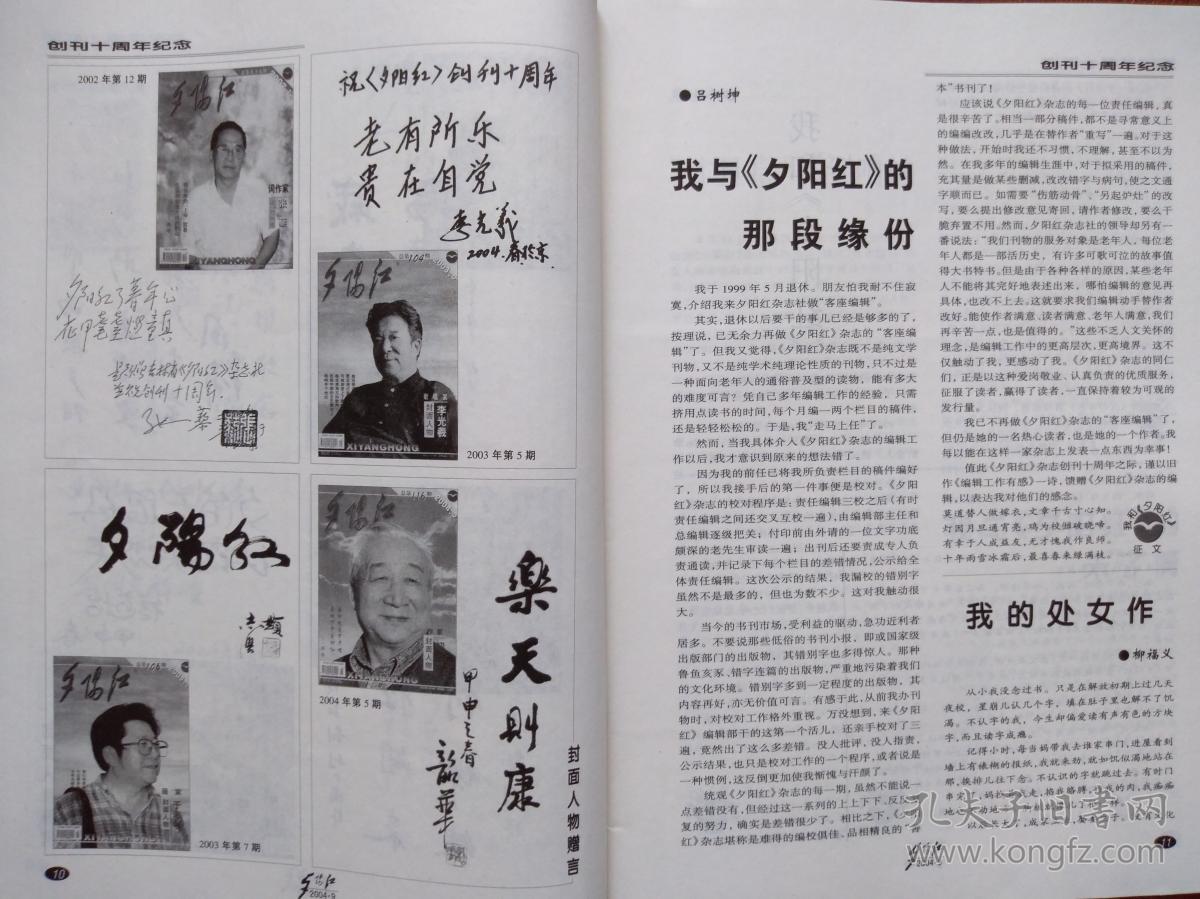 创刊十周年纪念
2002 年第 12 期
夕陽红
词作家
XIYANGHONG
祝《夕阳红》创刊十周年
老有所乐
贵在自觉
李光羲
2004.春於京
总第104期
夕陽红
封面人物
李光羲
XIYANGHONG
2003 年第 5 期
夕陽红
总第106期
夕陽红
封面人物
XIYANGHONG
2003 年第 7 期
总第116期
夕陽红
封面人物
2004 年第 5 期
樂天則康
甲申之春
韶華
封面人物赠言
10
夕陽红
2004·9
创刊十周年纪念
●吕树坤
我与《夕阳红》的
那段缘份
我于 1999 年 5 月退休。朋友怕我耐不住寂
寞,介绍我来夕阳红杂志社做“客座编辑”。
其实,退休以后要干的事儿已经是够多的了,
按理说,已无余力再做《夕阳红》杂志的“客座编
辑”了。但我又觉得,《夕阳红》杂志既不是纯文学
刊物,又不是纯学术纯理论性质的刊物,只不过是
一种面向老年人的通俗普及型的读物,能有多大
的难度可言?凭自己多年编辑工作的经验,只需
挤用点读书的时间,每个月编一两个栏目的稿件,
还是轻轻松松的。于是,我“走马上任”了。
然而,当我具体介入《夕阳红》杂志的编辑工
作以后,我才意识到原来的想法错了。
因为我的前任已将我所负责栏目的稿件编好
了,所以我接手后的第一件事便是校对。《夕阳
红》杂志的校对程序是:责任编辑三校之后(有时
责任编辑之间还交叉互校一遍),由编辑部主任和
总编辑逐级把关;付印前由外请的一位文字功底
颇深的老先生审读一遍;出刊后还要责成专人负
责通读,并记录下每个栏目的差错情况,公示给全
体责任编辑。这次公示的结果,我漏校的错别字
虽然不是最多的,但也为数不少。这对我触动很
大。
当今的书刊市场,受利益的驱动,急功近利者
居多。不要说那些低俗的书刊小报,即或国家级
出版部门的出版物,其错别字也多得惊人。那种
鲁鱼亥豕、错字连篇的出版物,严重地污染着我们
的文化环境。错别字多到一定程度的出版物,其
内容再好,亦无价值可言。有感于此,从前我办刊
物时,对校对工作格外重视。万没想到,来《夕阳
红》编辑部干的这第一个活儿,还亲手校对了三
遍,竟然出了这么多差错。没人批评,没人指责,
公示结果,也只是校对工作的一个程序,或者说是
一种惯例,这反倒更加使我惭愧与汗颜了。
统观《夕阳红》杂志的每一期,虽然不能说一
点差错没有,但经过这一系列的上上下下、反反复
复的努力,确实是差错很少了。相比之下,《夕阳
红》杂志堪称是难得的编校俱佳、品相精良的“善
本”书刊了!
应该说《夕阳红》杂志的每一位责任编辑,真
是很辛苦了。相当一部分稿件,都不是寻常意义上
的编编改改,几乎是在替作者“重写”一遍。对于这
种做法,开始时我还不习惯,不理解,甚至不以为
然。在我多年的编辑生涯中,对于拟采用的稿件,
充其量是做某些删减,改改错字与病句,使之文通
字顺而已。如需要“伤筋动骨”、“另起炉灶”的改
写,要么提出修改意见寄回,请作者修改,要么干
脆弃置不用。然而,夕阳红杂志社的领导却另有一
番说法:“我们刊物的服务对象是老年人,每位老
年人都是一部活历史,有许多可歌可泣的故事值
得大书特书。但是由于各种各样的原因,某些老年
人不能将其完好地表述出来,哪怕编辑的意见再
具体,也改不上去。这就要求我们编辑动手替作者
改好。能使作者满意、读者满意、老年人满意,我们
再辛苦一点,也是值得的。”这些不乏人文关怀的
理念,是编辑工作中的更高层次,更高境界。这不
仅触动了我,更感动了我。《夕阳红》杂志的同仁
们,正是以这种爱岗敬业、认真负责的优质服务,
征服了读者,赢得了读者,一直保持着较为可观的
发行量。
我已不再做《夕阳红》杂志的“客座编辑”了,
但仍是她的一名热心读者,也是她的一个作者。我
每以能在这样一家杂志上发表一点东西为幸事!
值此《夕阳红》杂志创刊十周年之际,谨以旧
作《编辑工作有感》一诗,馈赠《夕阳红》杂志的编
辑,以表达我对他们的感念。
莫道替人做嫁衣,文章千古寸心知。
灯因月旦通宵亮,鸡为校雠破晓啼。
有幸于人成益友,无才愧我作良师。
十年雨雪冰霜后,最喜春来绿满枝。
我和《夕阳红》
征文
我的处女作
●柳福义
从小我没念过书。只是在解放初期上过几天
夜校,星崩儿认几个字,填在肚子里也解不了饥
渴。不认字的我,今生却偏爱读有声有色的方块
字,而且读字成瘾。
记得小时,每当妈带我去谁家串门,进屋看到
墙上有裱糊的报纸,我就来劲,就如饥似渴地站在
那,挨排儿往下念。不认识的字就跳过去。有时门
夕陽红
2004·9
11
孔夫子旧书网
www.kongfz.com